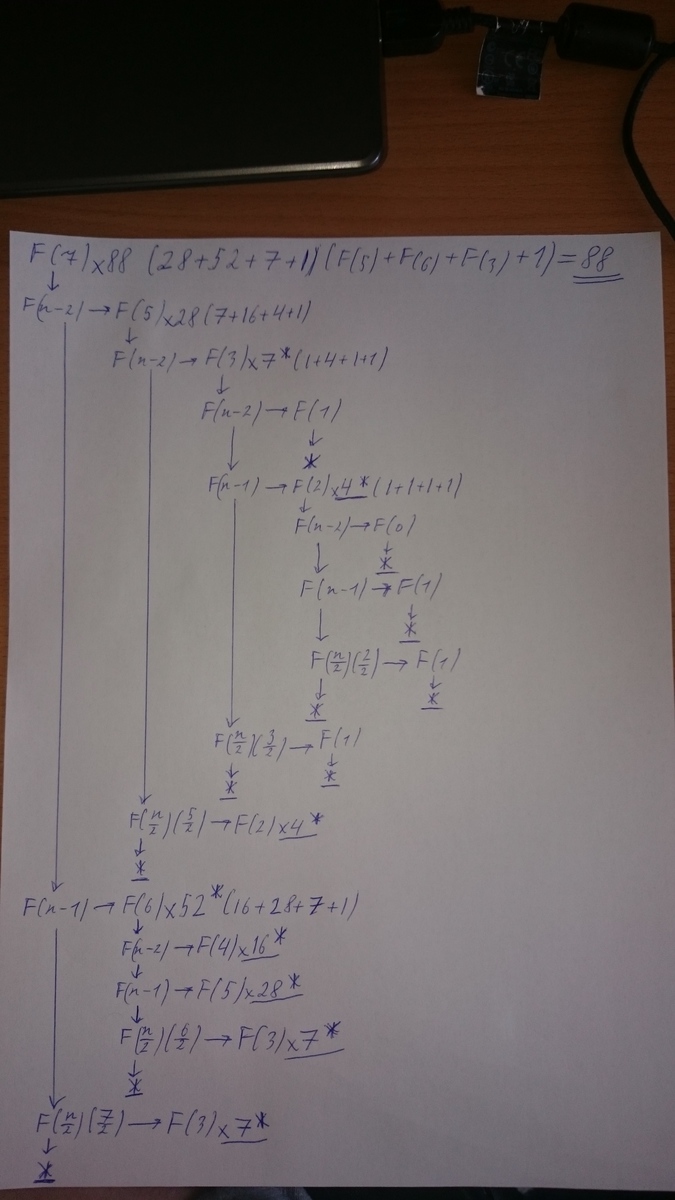 F(7)×88 (28+52+7+1) (F(5)+F(6)+F(3)+1)=88
↓
F(n-2)→F(5)×28(7+16+4+1)
↓
F(n-2)→F(3)×7*(1+4+1+1)
↓
F(n-2)→F(1)
↓ ↓
*
F(n-1)→F(2)×4*(1+1+1+1)
↓
F(n-2)→F(0)
↓ ↓
*
F(n-1)→F(1)
↓ ↓
*
F(n/2)(2/2)→F(1)
↓ ↓
* *
F(n/2)(3/2)→F(1)
↓ ↓
* *
F(n/2)(5/2)→F(2)×4*
↓
*
F(n-1)→F(6)×52*(16+28+7+1)
↓
F(n-2)→F(4)×16*
↓
F(n-1)→F(5)×28*
↓
F(n/2)(6/2)→F(3)×7*
↓
*
F(n/2)(7/2)→F(3)×7*
↓
*